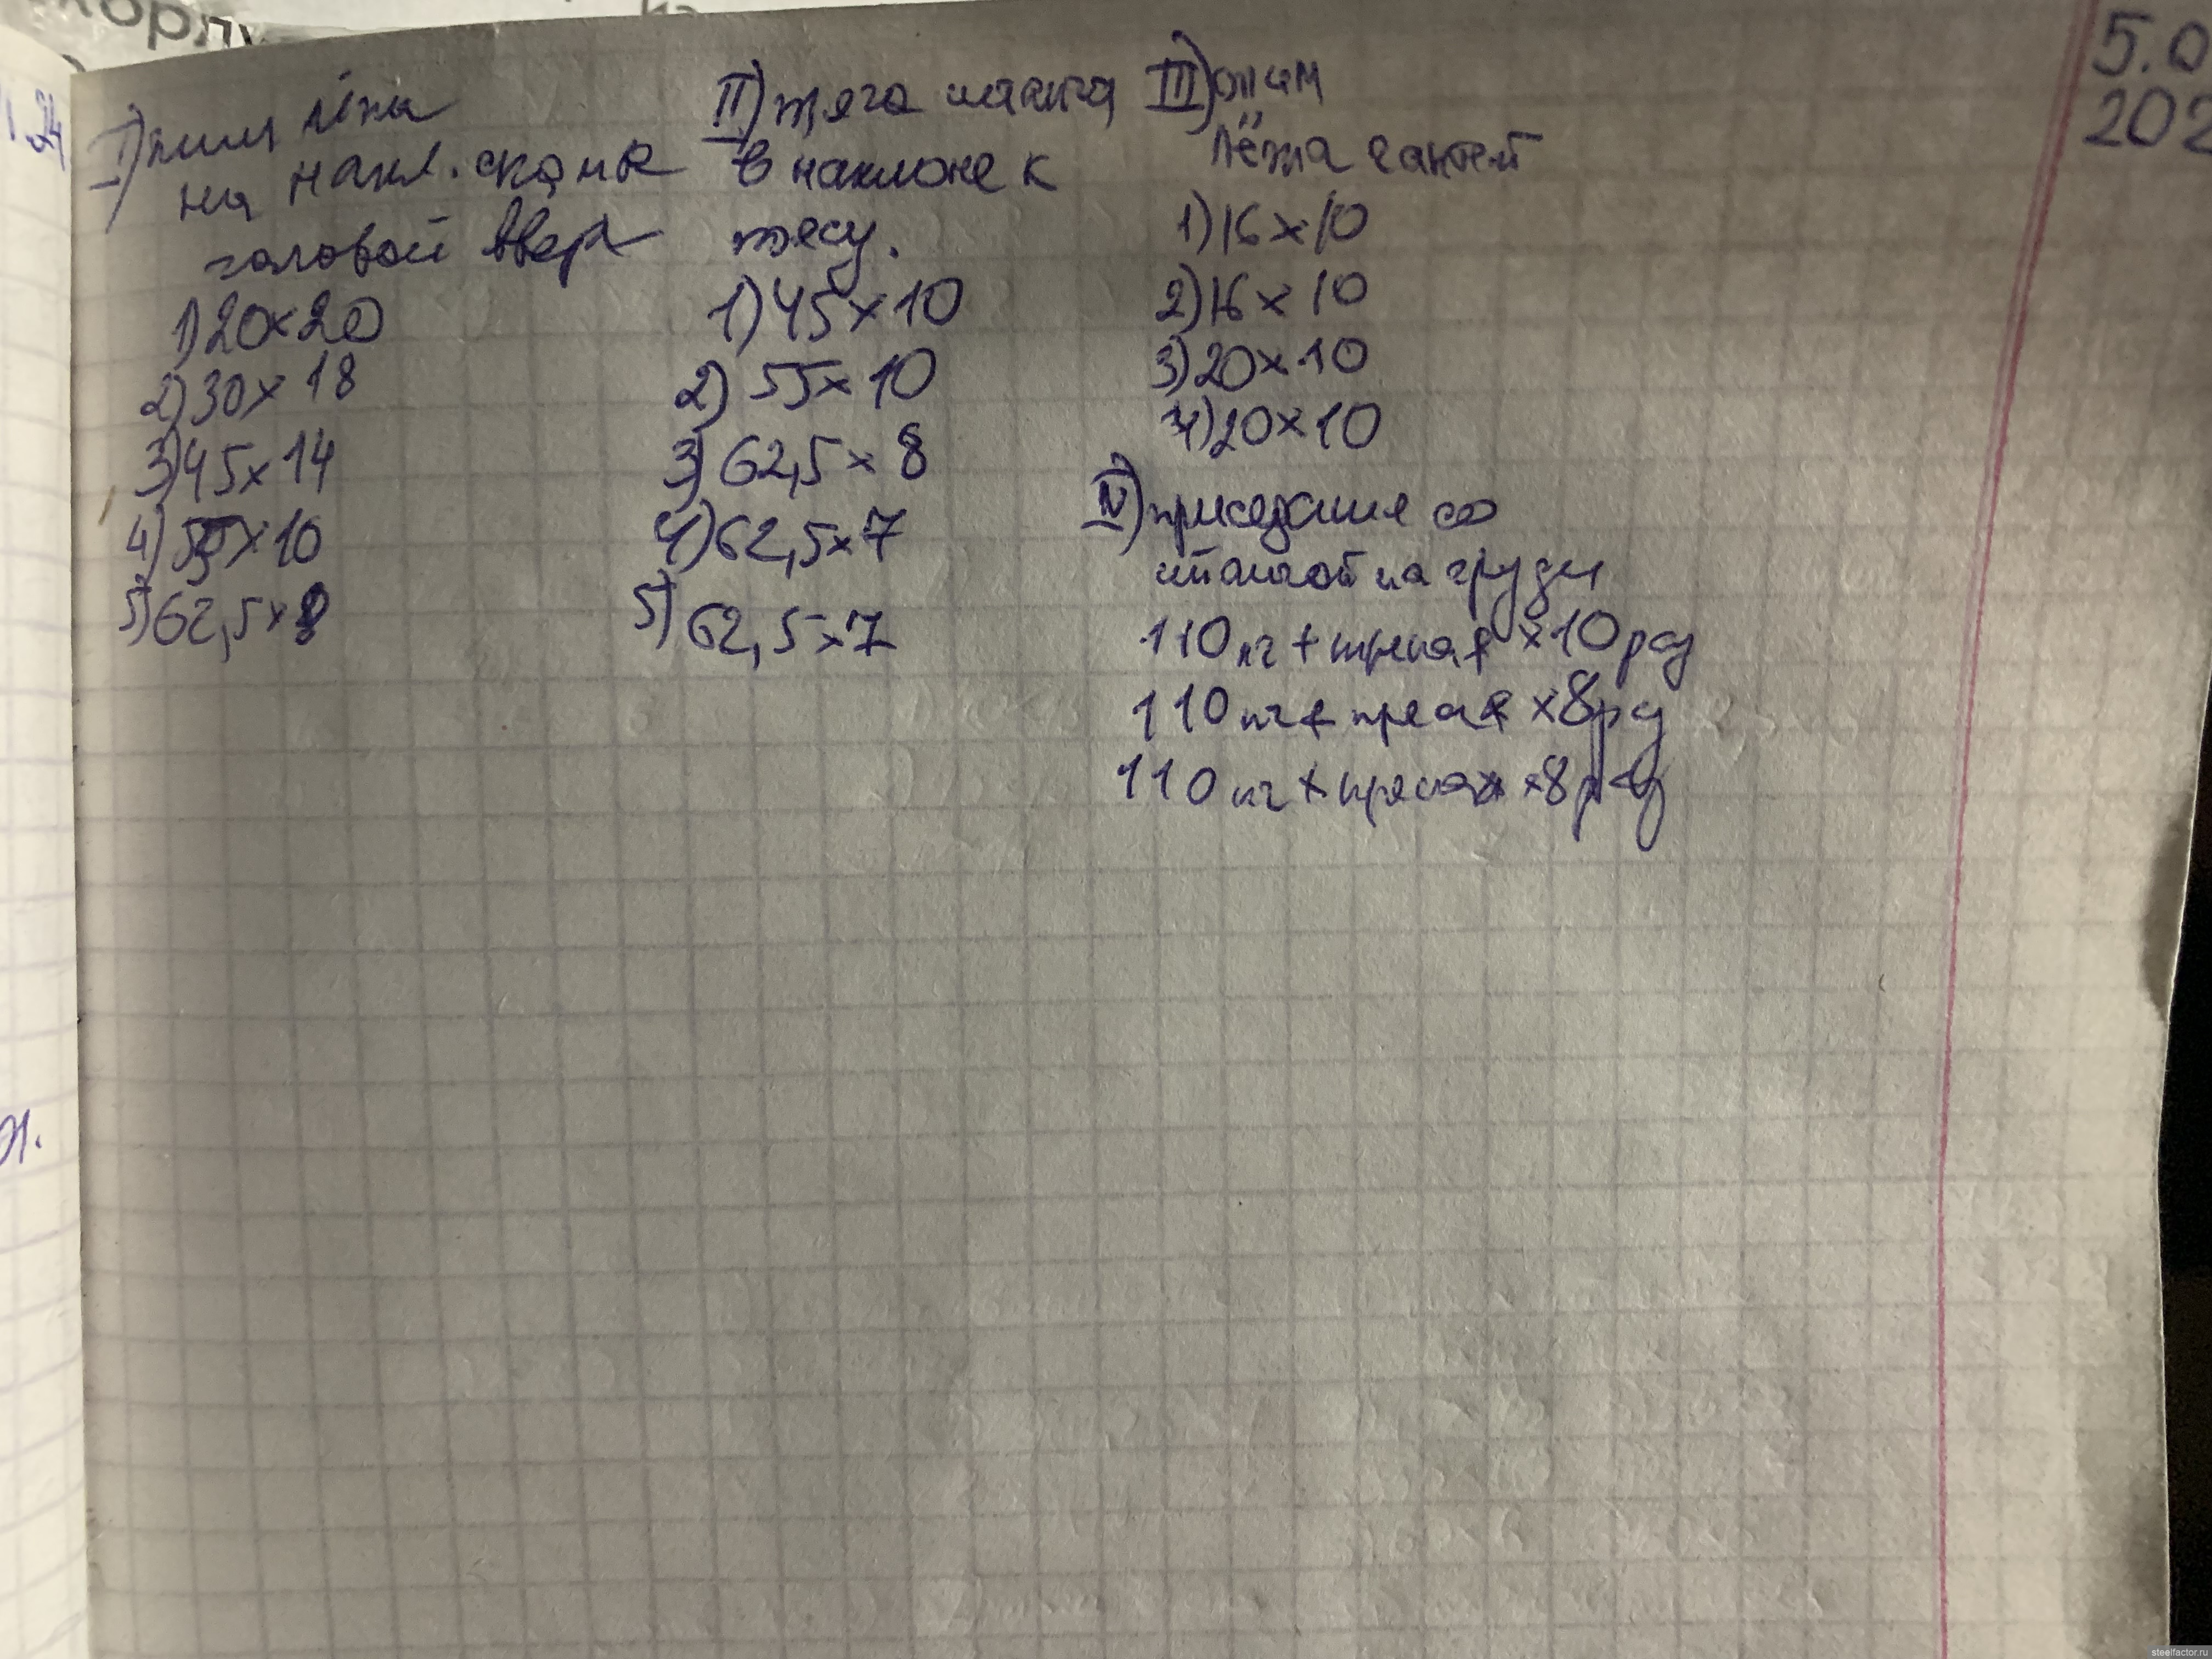 I) жим лёжа
на накл. скамье
головой вверх
1) 20x20
2) 30x18
3) 45x14
4) 55x10
5) 62,5x8
II) тяга штанги
в наклоне к
поясу.
1) 45x10
2) 55x10
3) 62,5x8
4) 62,5x7
5) 62,5x7
III) жим
лёжа гантей
1) 16x10
2) 16x10
3) 20x10
4) 20x10
IV) приседание со
штангой на груди
110 кг + x10 раз
110 кг + x8 раз
110 кг + x8 раз
5.0
202
steelfactor.ru